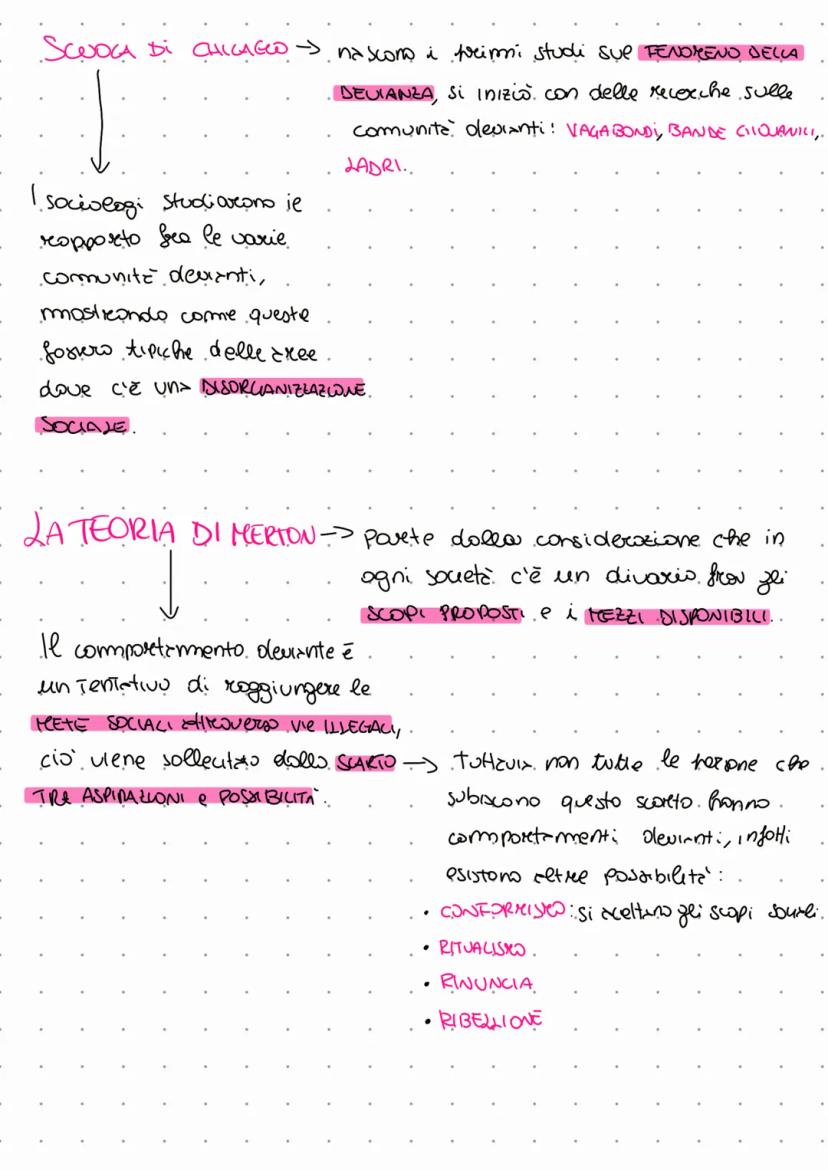 SCUOLA DI CHICAGO → nascono i primi studi sul FENOMENO DELLA
DEVIANZA, si iniziò con delle ricerche sulle
comunità devianti: VAGABONDI, BANDE GIOVANILI,
LADRI.
I sociologi studiarono il
rapporto fra le varie
comunità devianti,
mostrando come queste
fossero tipiche delle aree
dove c'è una DISORGANIZZAZIONE
SOCIALE.
LA TEORIA DI MERTON → parte dalla considerazione che in
ogni società c'è un divario fra gli
SCOPI PROPOSTI e i MEZZI DISPONIBILI.
Il comportamento deviante è
un tentativo di raggiungere le
METE SOCIALI attraverso VIE ILLEGALI,
ciò viene sollecitato dallo SCARTO
TRA ASPIRAZIONI e POSSIBILITÀ.
→ tuttavia non tutte le persone che
subiscono questo scarto hanno
comportamenti devianti, infatti
esistono altre possibilità:
• CONFORMISMO: si accettano gli scopi sociali.
• RITUALISMO
• RINUNCIA
• RIBELLIONE